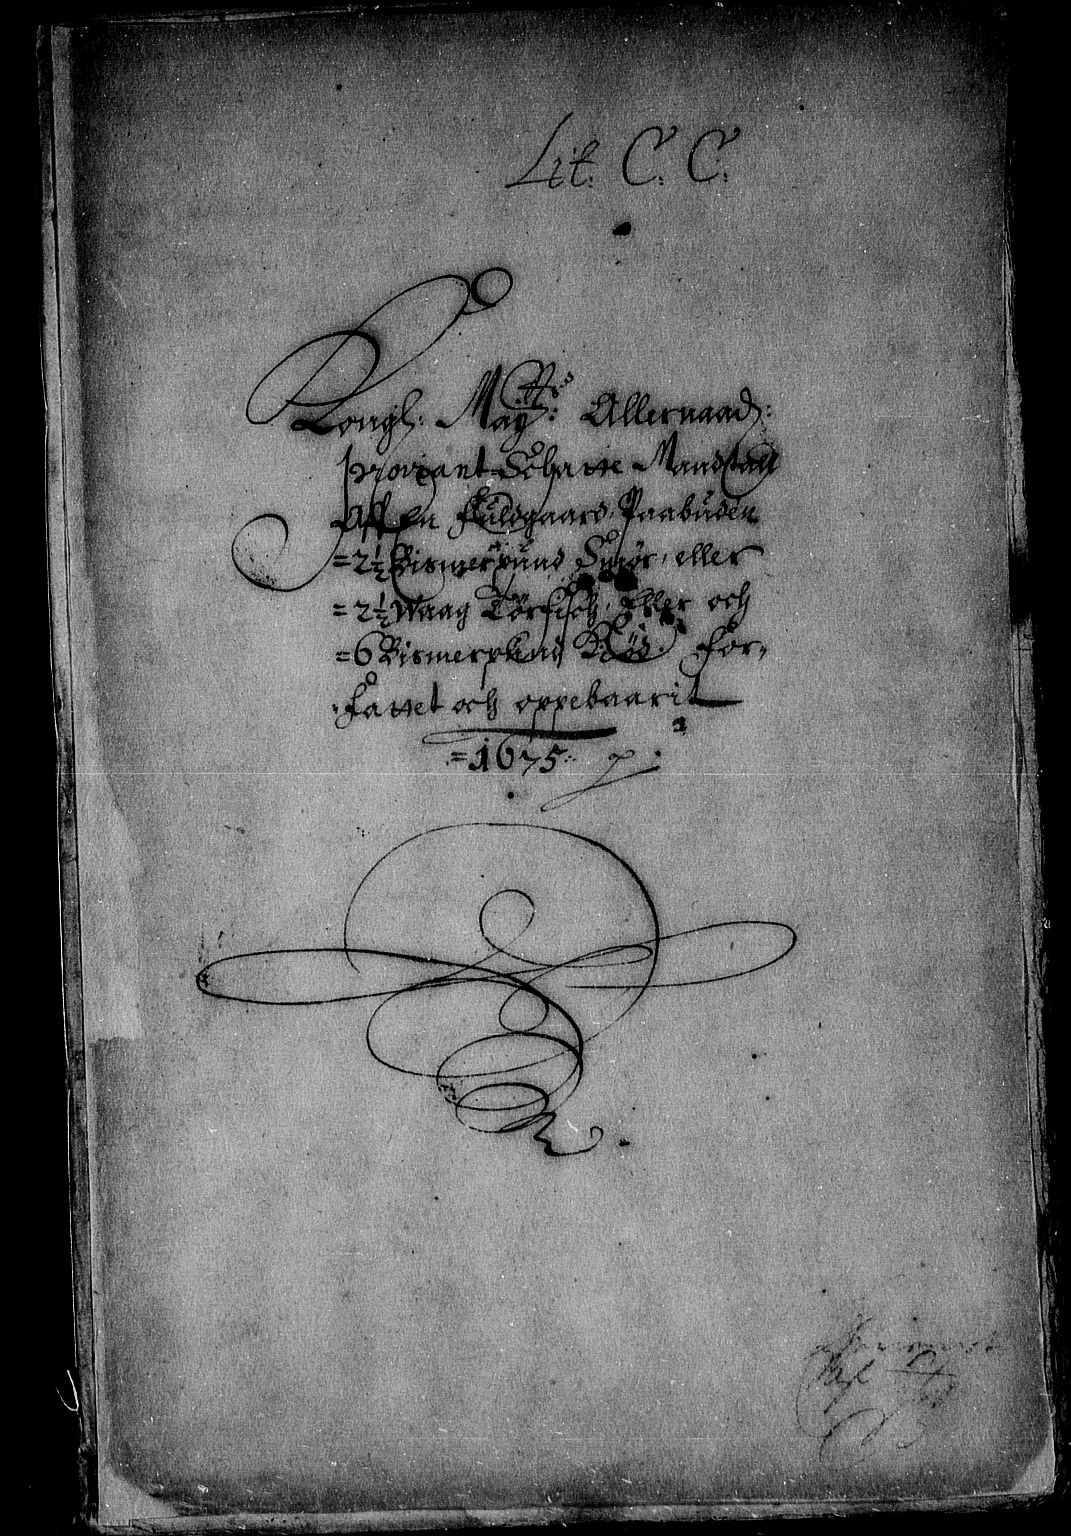 Lit. C. C.
Kongl: May:tts Allernaad:
proviant Schatte Mandtall
Aff En Fuldgaard Paabuden
=2½ Bismerpund Smør, eller
=2½ Waag Tørfisch, Eller och
=6 Bismerpund Kiød. For-
fattet och oppebaarit
=1675.